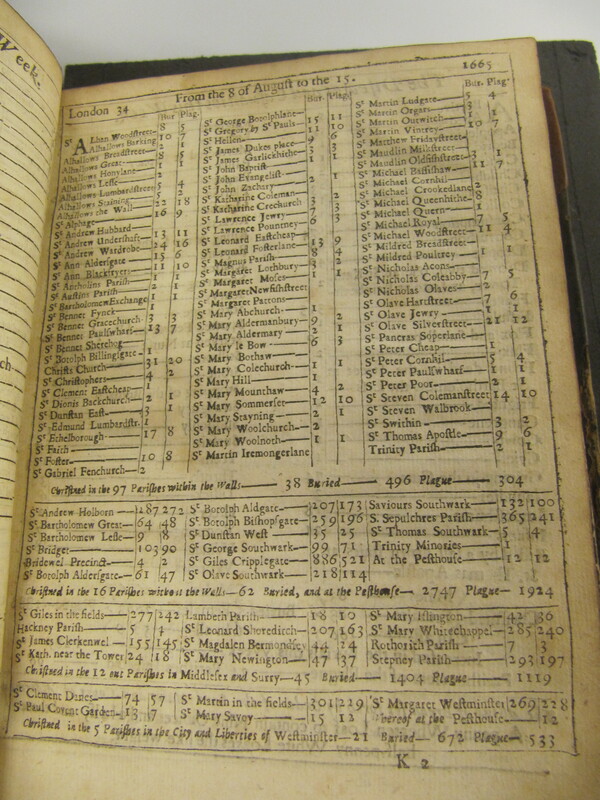 Week.
1665
London 34 From the 8 of August to the 15.
Bur. Plag.
St Alban Woodstreet 8 5
Alhallows Barking 10 7
Alhallows Breadstreet 2 1
Alhallows Great 8 5
Alhallows Honylane 1
Alhallows Lesse 2 1
Alhallows Lumbardstreet 5 4
Alhallows Staining 5 2
Alhallows the Wall 22 18
St Alphage 16 9
St Andrew Hubbard 1
St Andrew Undershaft 13 11
St Andrew Wardrobe 24 16
St Ann Aldersgate 15 6
St Ann Blackfryers 11 10
St Antholins Parish 1
St Austins Parish 2 1
St Bartholomew Exchange 1 1
St Bennet Fynck 1
St Bennet Gracechurch 3 3
St Bennet Paulswharf 13 7
St Bennet Sherehog
St Botolph Billingsgate 1
Christs Church 31 20
St Christophers 4 2
St Clement Eastcheap 1
St Dionis Backchurch 2 1
St Dunstan East 3 1
St Edmund Lumbardstr. 1
St Ethelborough 17 8
St Faith
St Foster 10 8
St Gabriel Fenchurch 2
Bur. Plag.
St George Botolphlane
St Gregory by St Pauls 15 11
St Hellen 11 10
St James Dukes place
St James Garlickhithe
St John Baptist
St John Evangelist
St John Zachary
St Katharine Coleman
St Katharine Crechurch
St Lawrence Jewry
St Lawrence Pountney
St Leonard Eastcheap
St Leonard Fosterlane 13 9
St Magnus Parish
St Margaret Lothbury
St Margaret Moses
St Margaret Newfishstreet
St Margaret Pattons
St Mary Abchurch
St Mary Aldermanbury
St Mary Aldermary
St Mary le Bow 6 3
St Mary Bothaw
St Mary Colechurch 1 1
St Mary Hill 1
St Mary Mounthaw 4 2
St Mary Sommerset 12 10
St Mary Stayning 2
St Mary Woolchurch 2
St Mary Woolnoth 1 1
St Martin Iremongerlane
Bur. Plag.
St Martin Ludgate 5 4
St Martin Orgars 3
St Martin Outwitch 1
St Martin Vintrey 10 7
St Matthew Fridaystreet
St Maudlin Milkstreet
St Maudlin Oldfishstreet 3 1
St Michael Bassishaw 11 7
St Michael Cornhil
St Michael Crookedlane
St Michael Queenhithe 8
St Michael Quern 1
St Michael Royal 7 5
St Michael Woodstreet 11 4
St Mildred Breadstreet
St Mildred Poultrey 1 1
St Nicholas Acons
St Nicholas Coleabby 7 5
St Nicholas Olaves 2 1
St Olave Hartstreet 7 6
St Olave Jewry 1 1
St Olave Silverstreet 21 12
St Pancras Soperlane
St Peter Cheap 1
St Peter Cornhil 5 4
St Peter Paulswharf 1 1
St Peter Poor 2 1
St Steven Colemanstreet 14 10
St Steven Walbrook
St Swithin 3 2
St Thomas Apostle 9 6
Trinity Parish 2 1
Christned in the 97 Parishes within the Walls 38 Buried 496 Plague 304
St Andrew Holborn 287 272
St Bartholomew Great 64 48
St Bartholomew Lesse 9 8
St Bridget 103 90
Bridewel Precinct 4 2
St Botolph Aldersgate 61 47
St Botolph Aldgate 207 173
St Botolph Bishopsgate 259 196
St Dunstan West 35 25
St George Southwark 99 71
St Giles Cripplegate 886 521
St Olave Southwark 218 114
Saviours Southwark 132 100
S. Sepulchres Parish 365 241
St Thomas Southwark 5 4
Trinity Minories 1
At the Pesthouse 12 12
Christned in the 16 Parishes without the Walls 62 Buried, and at the Pesthouse 2747 Plague 1924
St Giles in the fields 277 242
Hackney Parish 5 4
St James Clerkenwel 155 145
St Kath. near the Tower 24 18
Lambeth Parish 18 10
St Leonard Shoreditch 207 163
St Magdalen Bermondsey 44 24
St Mary Newington 47 37
St Mary Islington 42 36
St Mary Whitechappel 285 240
Rothorith Parish 7 3
Stepney Parish 293 197
Christned in the 12 out Parishes in Middlesex and Surry 45 Buried 1404 Plague 1119
St Clement Danes 74 57
St Paul Covent Garden 13 7
St Martin in the fields 301 229
St Mary Savoy 15 12
St Margaret Westminster 269 228
Whereof at the Pesthouse 12
Christned in the 5 Parishes in the City and Liberties of Westminster 21 Buried 672 Plague 533
K 2